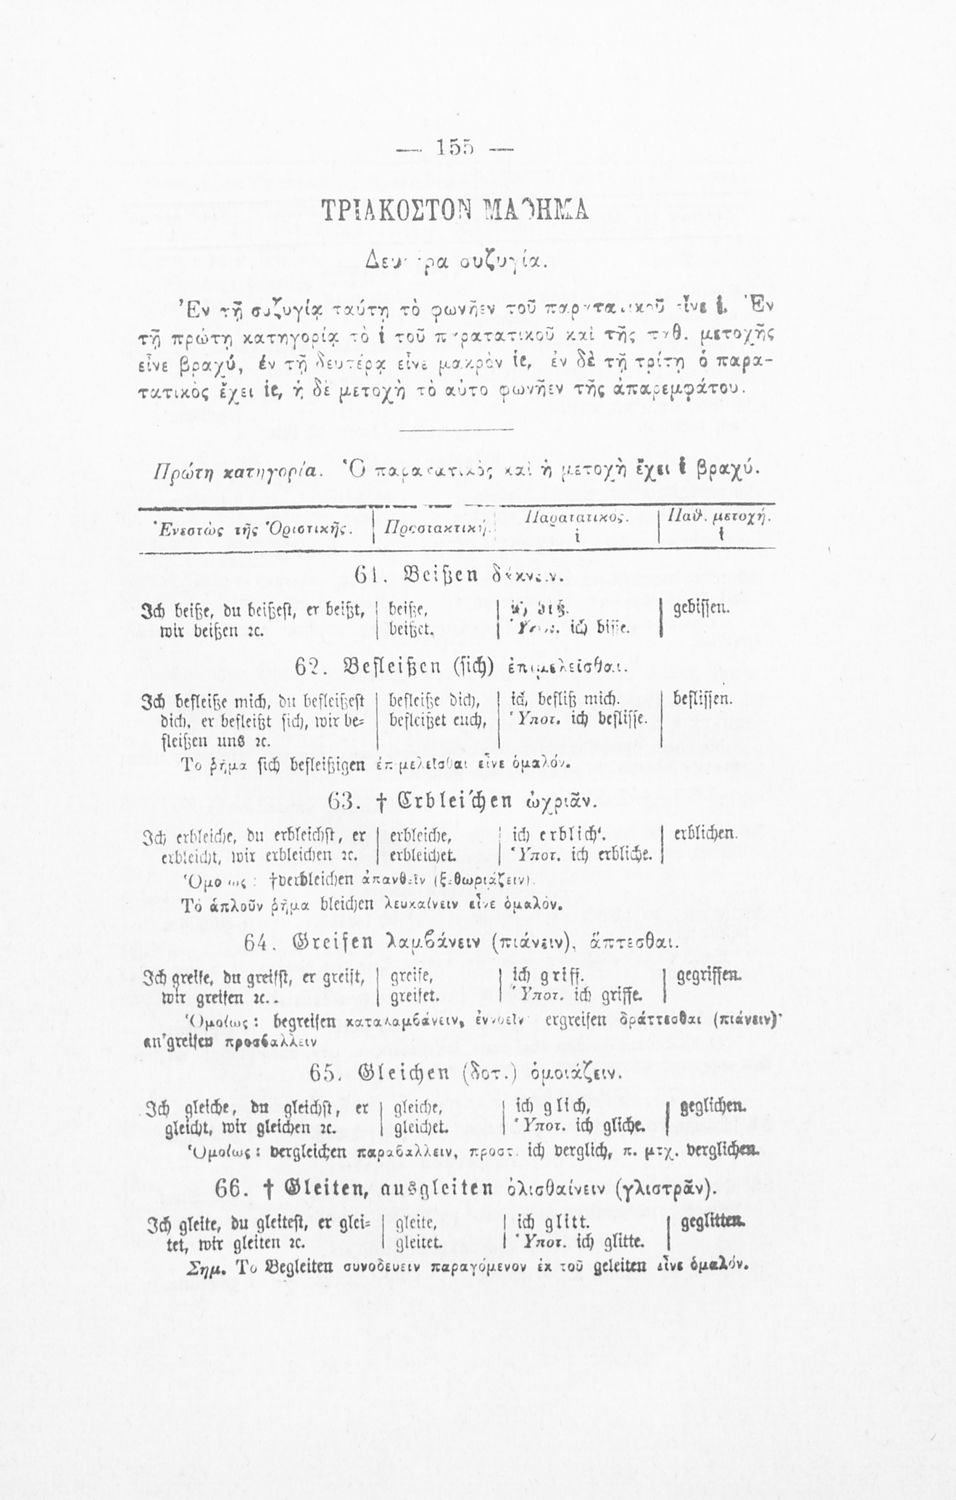 — 155 —
ΤΡΙΑΚΟΣΤΟΝ ΜΑΘΗΜΑ
Δευτέρα συζυγία.
Ἐν τῇ συζυγίᾳ ταύτῃ τὸ φωνῆεν τοῦ παρατατικοῦ εἶνε i. Ἐν
τῇ πρώτῃ κατηγορίᾳ τὸ i τοῦ παρατατικοῦ καὶ τῆς παθ. μετοχῆς
εἶνε βραχύ, ἐν τῇ δευτέρᾳ εἶνε μακρὸν ie, ἐν δὲ τῇ τρίτῃ ὁ παρα-
τατικὸς ἔχει ie, ἡ δὲ μετοχὴ τὸ αὐτο φωνῆεν τῆς ἀπαρεμφάτου.
Πρώτη κατηγορία. Ὁ παρατατικὸς καὶ ἡ μετοχὴ ἔχει i βραχύ.
Ἐνεστὼς τῆς Ὁριστικῆς. | Προστακτική. | Παρατατικος. i | Παθ. μετοχή. i
61. Beißen δάκνειν.
Ich beiße, du beißest, er beißt, | beiße, | ich biß. | gebissen.
wir beißen ꝛc. | beißet. | Ὑποτ. ich bisse.
62. Befleißen (sich) ἐπιμελεῖσθαι.
Ich befleiße mich, du befleißest | befleiße dich, | ich befliß mich. | beflissen.
dich, er befleißt sich, wir be= | befleißet euch, | Ὑποτ. ich beflisse.
fleißen uns ꝛc.
Το ῥῆμα sich befleißigen ἐπιμελεῖσθαι εἶνε ὁμαλόν.
63. † Erblei'chen ὠχριᾶν.
Ich erbleiche, du erbleichst, er | erbleiche, | ich erblich'. | erblichen.
erbleicht, wir erbleichen ꝛc. | erbleichet. | Ὑποτ. ich erbliche.
Ὁμοίως: †verbleichen ἀπανθεῖν (ξεθωριάζειν).
Τὸ ἁπλοῦν ῥῆμα bleichen λευκαίνειν εἶνε ὁμαλόν.
64. Greifen λαμβάνειν (πιάνειν), ἅπτεσθαι.
Ich greife, du greifst, er greift, | greife, | ich griff. | gegriffen.
wir greifen ꝛc.. | greifet. | Ὑποτ. ich griffe.
Ὁμοίως: begreifen καταλαμβάνειν, ἐννοεῖν ergreifen δράττεσθαι (πιάνειν)
an'greifen προσβαλλειν
65. Gleichen (δοτ.) ὁμοιάζειν.
Ich gleiche, du gleichst, er | gleiche, | ich glich, | geglichen.
gleicht, wir gleichen ꝛc. | gleichet. | Ὑποτ. ich gliche.
Ὁμοίως: vergleichen παραβαλλειν, προστ. ich verglich, π. μτχ. verglichen.
66. † Gleiten, ausgleiten ὀλισθαίνειν (γλιστρᾶν).
Ich gleite, du gleitest, er glei= | gleite, | ich glitt. | geglitten.
tet, wir gleiten ꝛc. | gleitet. | Ὑποτ. ich glitte.
Σημ. Το Begleiten συνοδευειν παραγόμενον ἐκ τοῦ geleiten εἶνε ὁμαλόν.